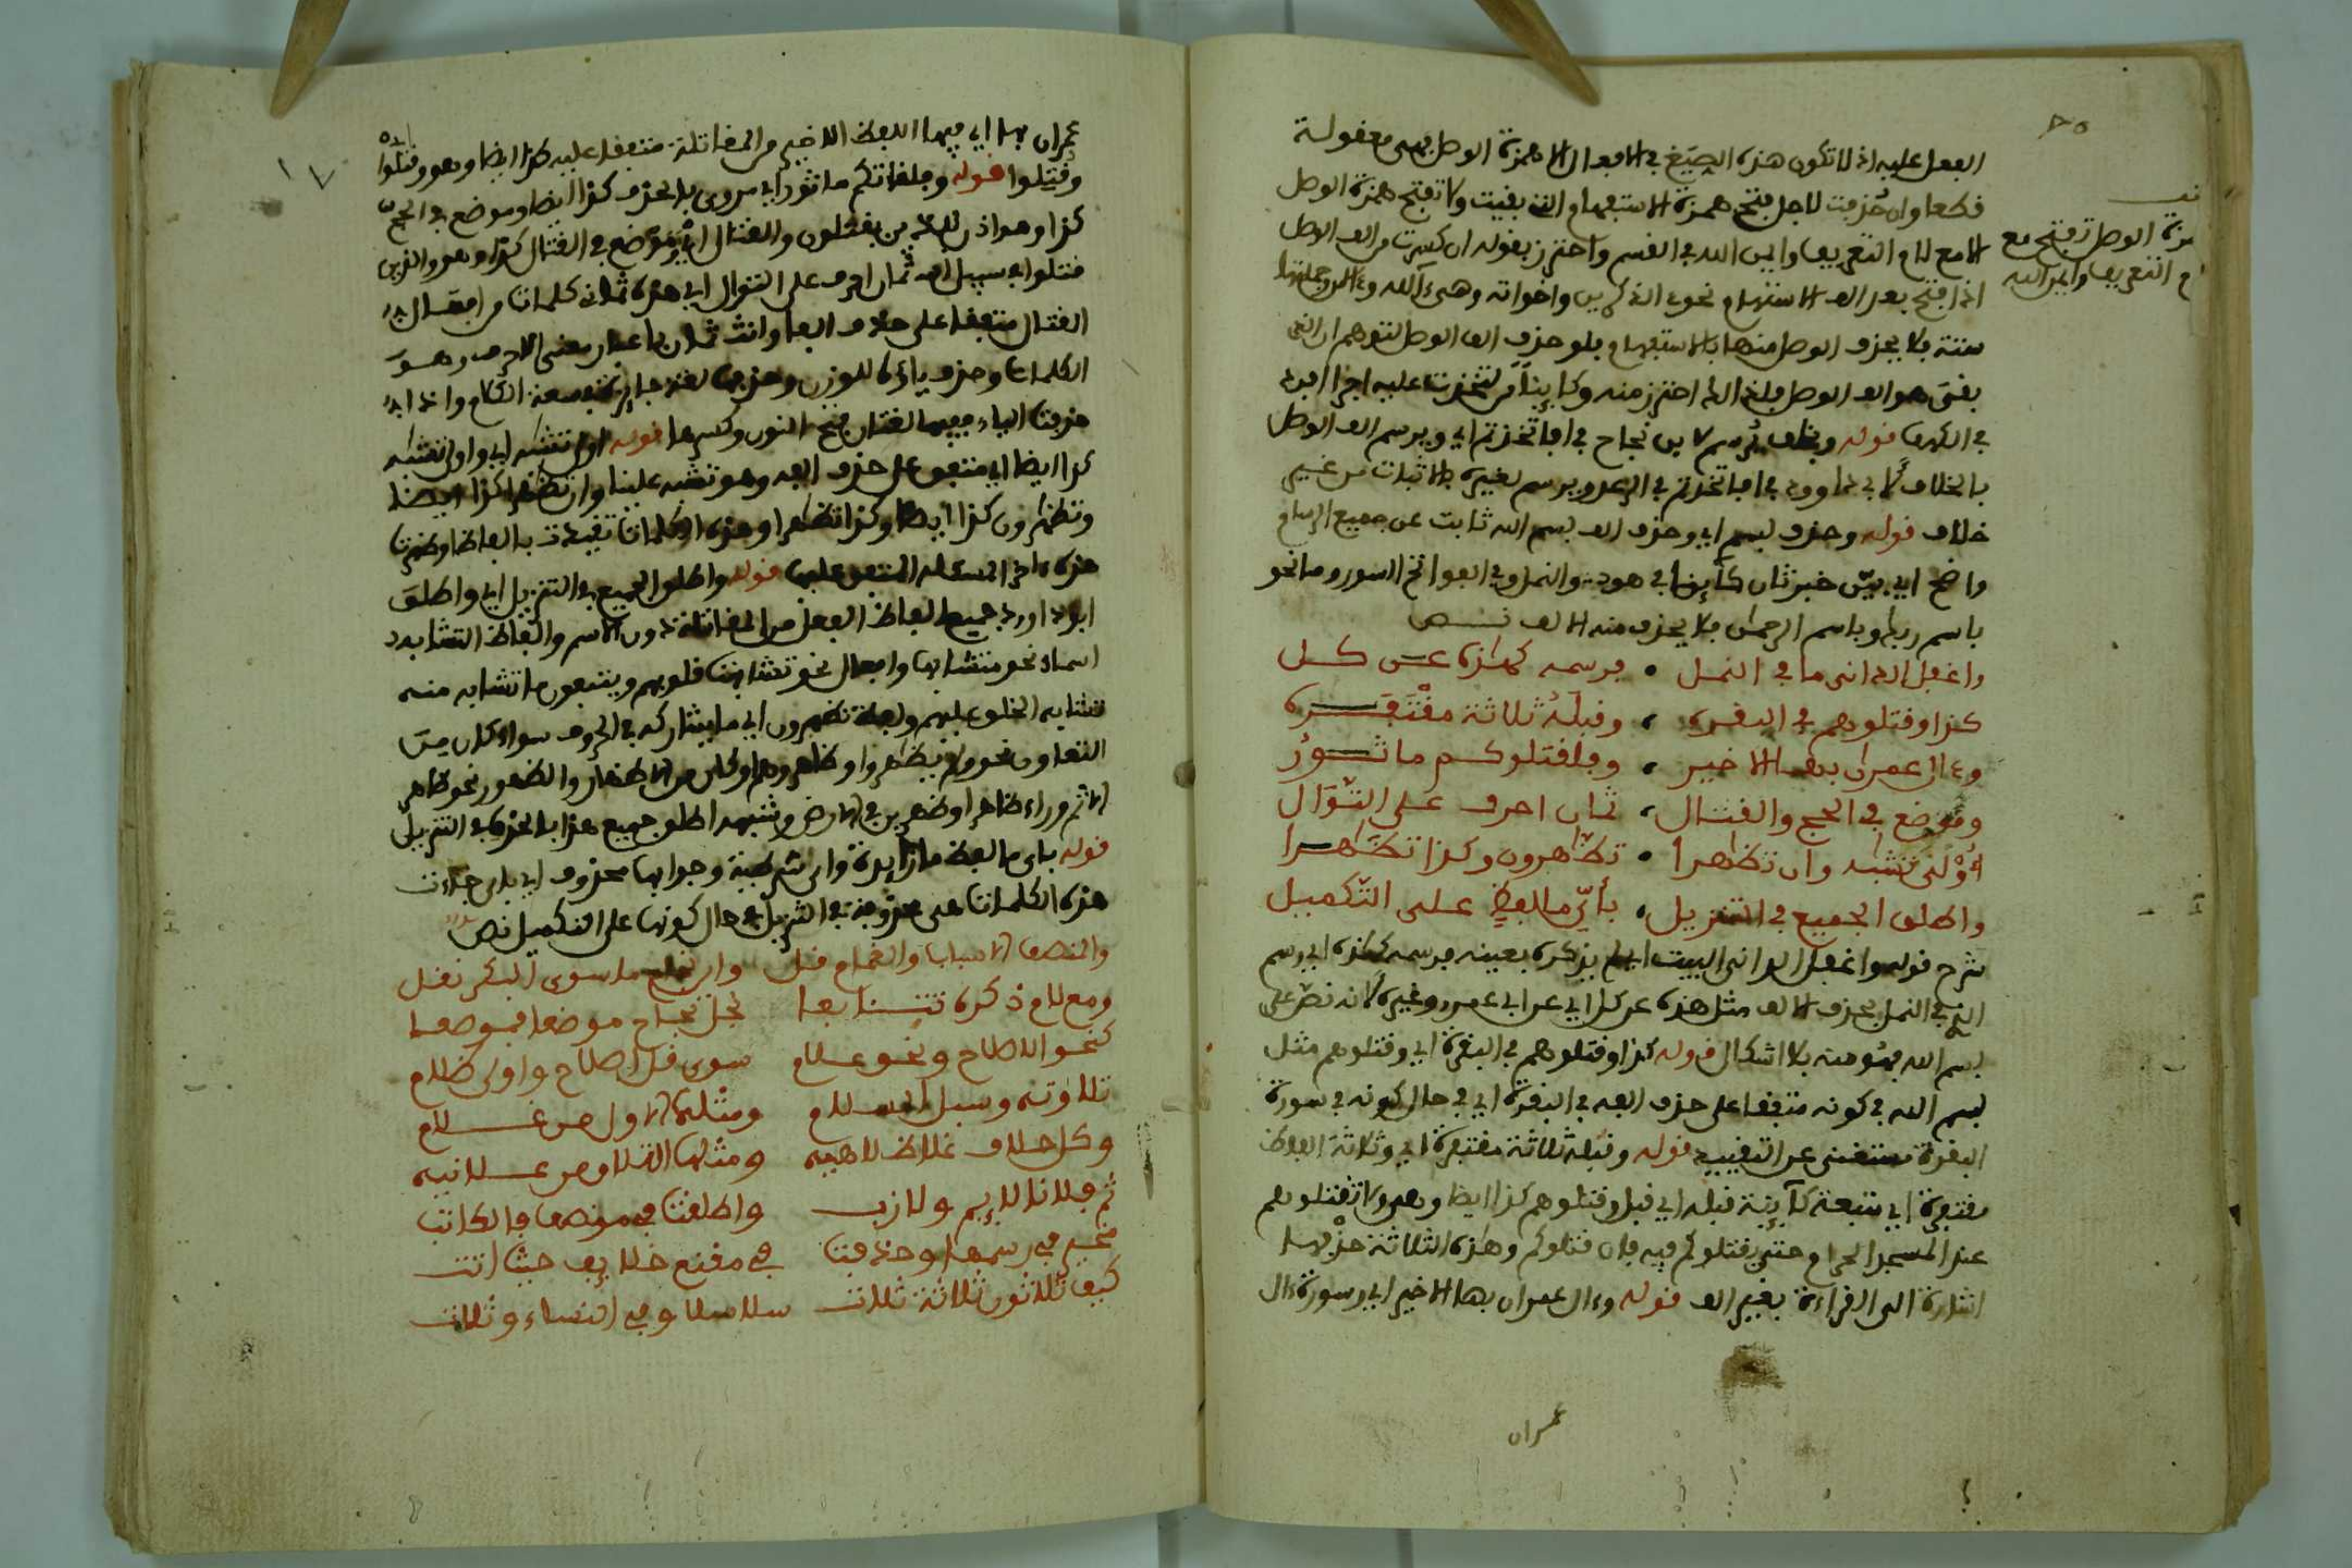 الفعل عليه اذ لا تكون هذه الصيغ في الافعال الا همزة الوصل فهي معقولة
فكعا وان حُذفت لاجل فتح همزة الاستفهام التي بقيت ولا تفتح همزة الوصل
الا مع لام التعريف وايمن الله في القسم واحترز بقوله ان كسرت من الف الوصل
نف
مزة الوصل تفتح مع
م التعريف وايمن الله
اذا فتح بعد الف الاستفهام نحو ءالذكرين واخواته وهي ءآلله
ستة فلا يحذف الوصل منها بالاستفهام فلو حذف الف الوصل لتوهم ان التي
بقى هو الف الوصل فلذا احترز منه لتخذت عليه اجرا
في الكهف قوله وبخلف يُرسم لابن نجاح في افاتخذتم اي ويرسم الف الوصل
بالخلاف لابي داوود في افاتخذتم في الرعد ويرسم لغيره بالاثبات من غير
خلاف قوله وحذف بسم اي وحذف الف بسم الله ثابت عن جميع الرسام
واضح اي بيّن خبر ثان كآينا في هود والنمل وفي فواتح السور وما نحو
باسم ربك وباسم الرحمان فلا يحذف منه الالف نص
واغفل الداني ما في النمل • فرسمه كهذه عن كل
كذا وقتلوهم في البقرة ، وقبلهُ ثلاثة مقتفرة
وءال عمران بها الاخير ، وفلقتلوكم ماثور
وموضع في الحج والقتال ، ثمان احرف على التوال
أوْلني تشبه وان تظهرا • تظهرون وكذا تظهرا
واطلق الجميع في التنزيل ، بأيّ ما لفظٍ على التكميل
شرح قوله واغفل الداني البيت اي لم يذكره بعينه فرسمه كهذه اي رسم
الذي في النمل بحذف الالف مثل هذه عن كل اي عن ابي عمرو وغيره لانه نص على
بسم الله فهو منه بلا اشكال قوله كذا وقتلوهم في البقرة اي وقتلوهم مثل
بسم الله في كونه متفقا على حذف الفه في البقرة اي في حال كونه في سورة
البقرة مستغنى عن التقييد قوله وقبله ثلاثة مقتفرة اي وثلاثة الفاظ
مقتفرة اي متبعة كآينة قبله اي قبل وقتلوهم كذا ايضا وهي ولا تقتلوهم
عند المسجد الحرام حتى يقتلوكم فيه فان قتلوكم وهذه الثلاثة حذفها
اشارة الى القراءة بغير الف قوله وءال عمران بها الاخير اي وسورة ءال
عمران
عمران بها اي فيها اللفظ الاخير من المقاتلة متفقا عليه كذا ايضا وهو وقتلوا
وقتلوا قوله وفلقتلوكم ماثور اي مروي بالحذف كذا ايضا وموضع في الحج
كذا وهو اذن للذين يقتلون والقتال اي وموضع في القتال كذا وهو والذين
قتلوا في سبيل الله ثمان احرف على التوال اي هذه ثمان كلمات من افعال
القتال متفقا على حذف الفها وانث ثمان باعتبار معنى الاحرف وهو
الكلمات وحذف ياءه للوزن وحذفها لغة جائز في سعة الكلام واذا
حذفت الياء ففيها لغتان فتح النون وكسرها قوله اولني تشبه اي واولني تشبه
كذا ايضا اي متفق على حذف الفه وهو تشبه علينا وان تظهرا كذا ايضا
وتظهرون كذا ايضا وكذا تظهرا وهذه الكلمات بالفاظ
هذه ءاخر المسئلة المتفق عليها قوله واطلق الجميع في التنزيل اي واطلق
ابو داوود جميع الفاظ الفعل من المقاتلة دون الاسم والفاظ التشابه
اسماء نحو متشابها وافعال نحو تشابهت قلوبهم ويتبعون ما تشابه منه
فتشابه الخلق عليهم ولفظة تظهرون اي ما يشاركه في الحروف سواء كان من
التعاون نحو ولم يظهروا وظاهروا او كان من الاظهار والظهور نحو ظاهر
الاثم وراءه ظاهرا وظهرين في الارض وشبهه اطلق جميع هذا بالحذف في التنزيل
قوله باي ما لفظ ما زايدة واي شرطية وجوابها محذوف اي باي جاءت
هذه الكلمات هي محذوفة في التنزيل في حال كونها على التكميل نص
والنصف الاسباب والغمام قل وابن نجاح ما سوى البكر نقل
ومع لام ذكره تتابعا نجل نجاح موضعا فموضعا
كنحو الاصلاح ونحو علام سوى قل اصلاح واولى ظلام
تلاوته وسبل السلام ومثلها الاول من غلام
وكل حلاف غلاظ لاهيه ومثلها التلاق من علانيه
ثم فلانا لا يم ولازب واطلقت في منصف فالكاتب
مخير في رسمها وحذفت في مقنع خلايف حيث اتت
كيف ثلاثون ثلاثة ثلاث سلاسلا وفي النساء وثلاث